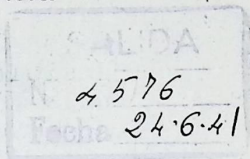 SALIDA
N. 4576
Fecha 24·6·41